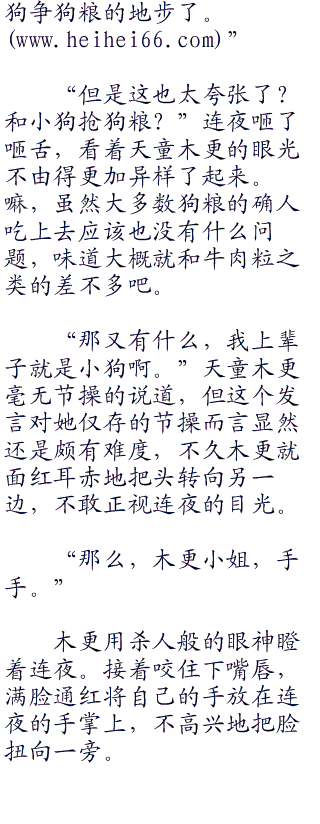 狗争狗粮的地步了。
(www.heihei66.com)”
“但是这也太夸张了?
和小狗抢狗粮?”连夜咂了
咂舌，看着天童木更的眼光
不由得更加异样了起来。
嘛，虽然大多数狗粮的确人
吃上去应该也没有什么问
题，味道大概就和牛肉粒之
类的差不多吧。
“那又有什么，我上辈
子就是小狗啊。”天童木更
毫无节操的说道，但这个发
言对她仅存的节操而言显然
还是颇有难度，不久木更就
面红耳赤地把头转向另一
边，不敢正视连夜的目光。
“那么，木更小姐，手
手。”
木更用杀人般的眼神瞪
着连夜。接着咬住下嘴唇，
满脸通红将自己的手放在连
夜的手掌上，不高兴地把脸
扭向一旁。